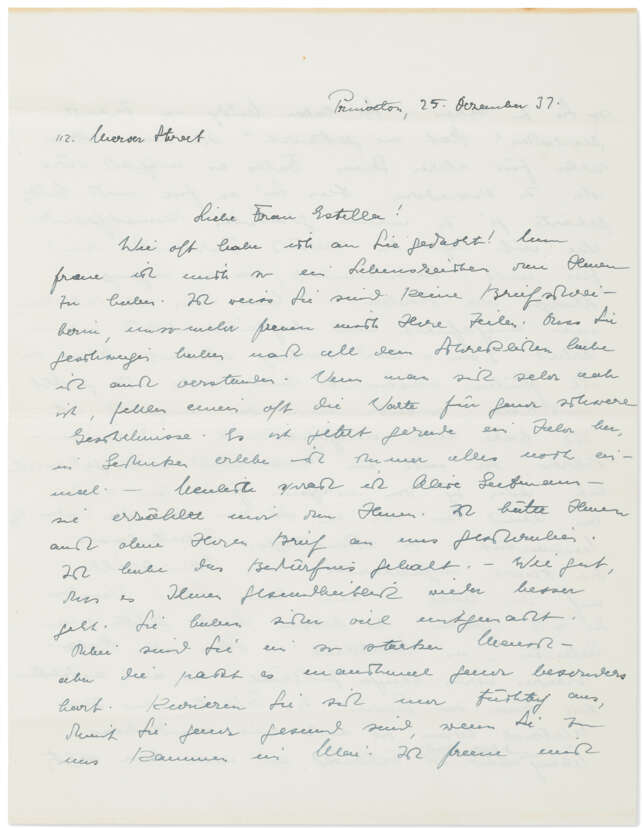 Princeton, 25. Dezember 37.
112. Mercer Street
Liebe Frau Estella!
Wie oft habe ich an Sie gedacht! Nun
freue ich mich so ein Lebenszeichen von Ihnen
zu haben. Ich weiss Sie sind keine Briefschrei-
berin, umsomehr freuen mich Ihre Zeilen. Dass Sie
geschwiegen haben nach all dem Schrecklichen habe
ich auch verstanden. Wenn man sich sehr nah
ist, fehlen einem oft die Worte für ganz schwere
Geschehnisse. Es ist jetzt gerade ein Jahr her,
in Gedanken erlebe ich immer alles noch ein-
mal. — Neulich sprach ich Alice —
sie erzählte mir von Ihnen. Ich hätte Ihnen
auch ohne Ihren Brief an uns geschrieben.
Ich habe das Bedürfnis gehabt. — Wie gut,
dass es Ihnen gesundheitlich wieder besser
geht. Sie haben sicher viel mitgemacht.
Dabei sind Sie ein so starker Mensch —
aber die packt es manchmal ganz besonders
hart. Kurieren Sie sich nur tüchtig aus,
damit Sie ganz gesund sind, wenn Sie zu
uns kommen im Mai. Ich freue mich